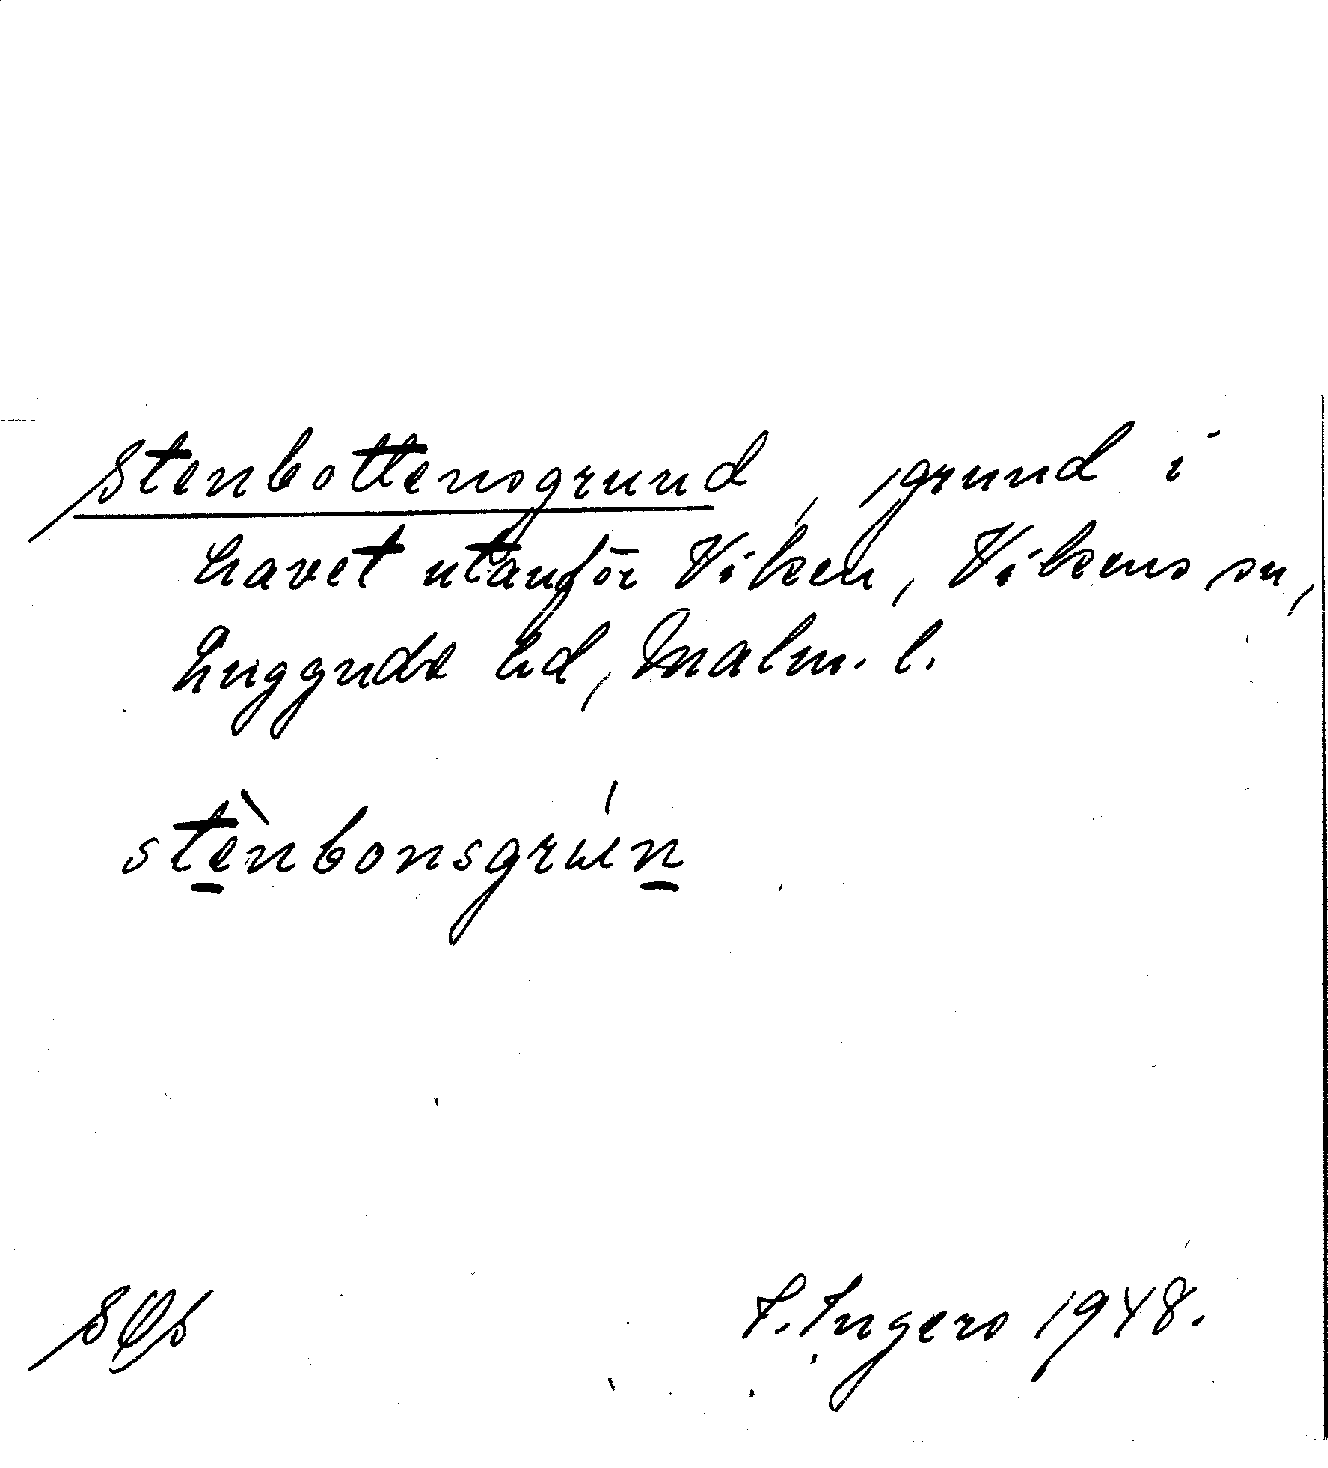 Stenbottensgrund, grund i
havet utanför Viken, Vikens sn,
Luggude hd, Malm. l.
stènbonsgrún
I. Ingers 1948.